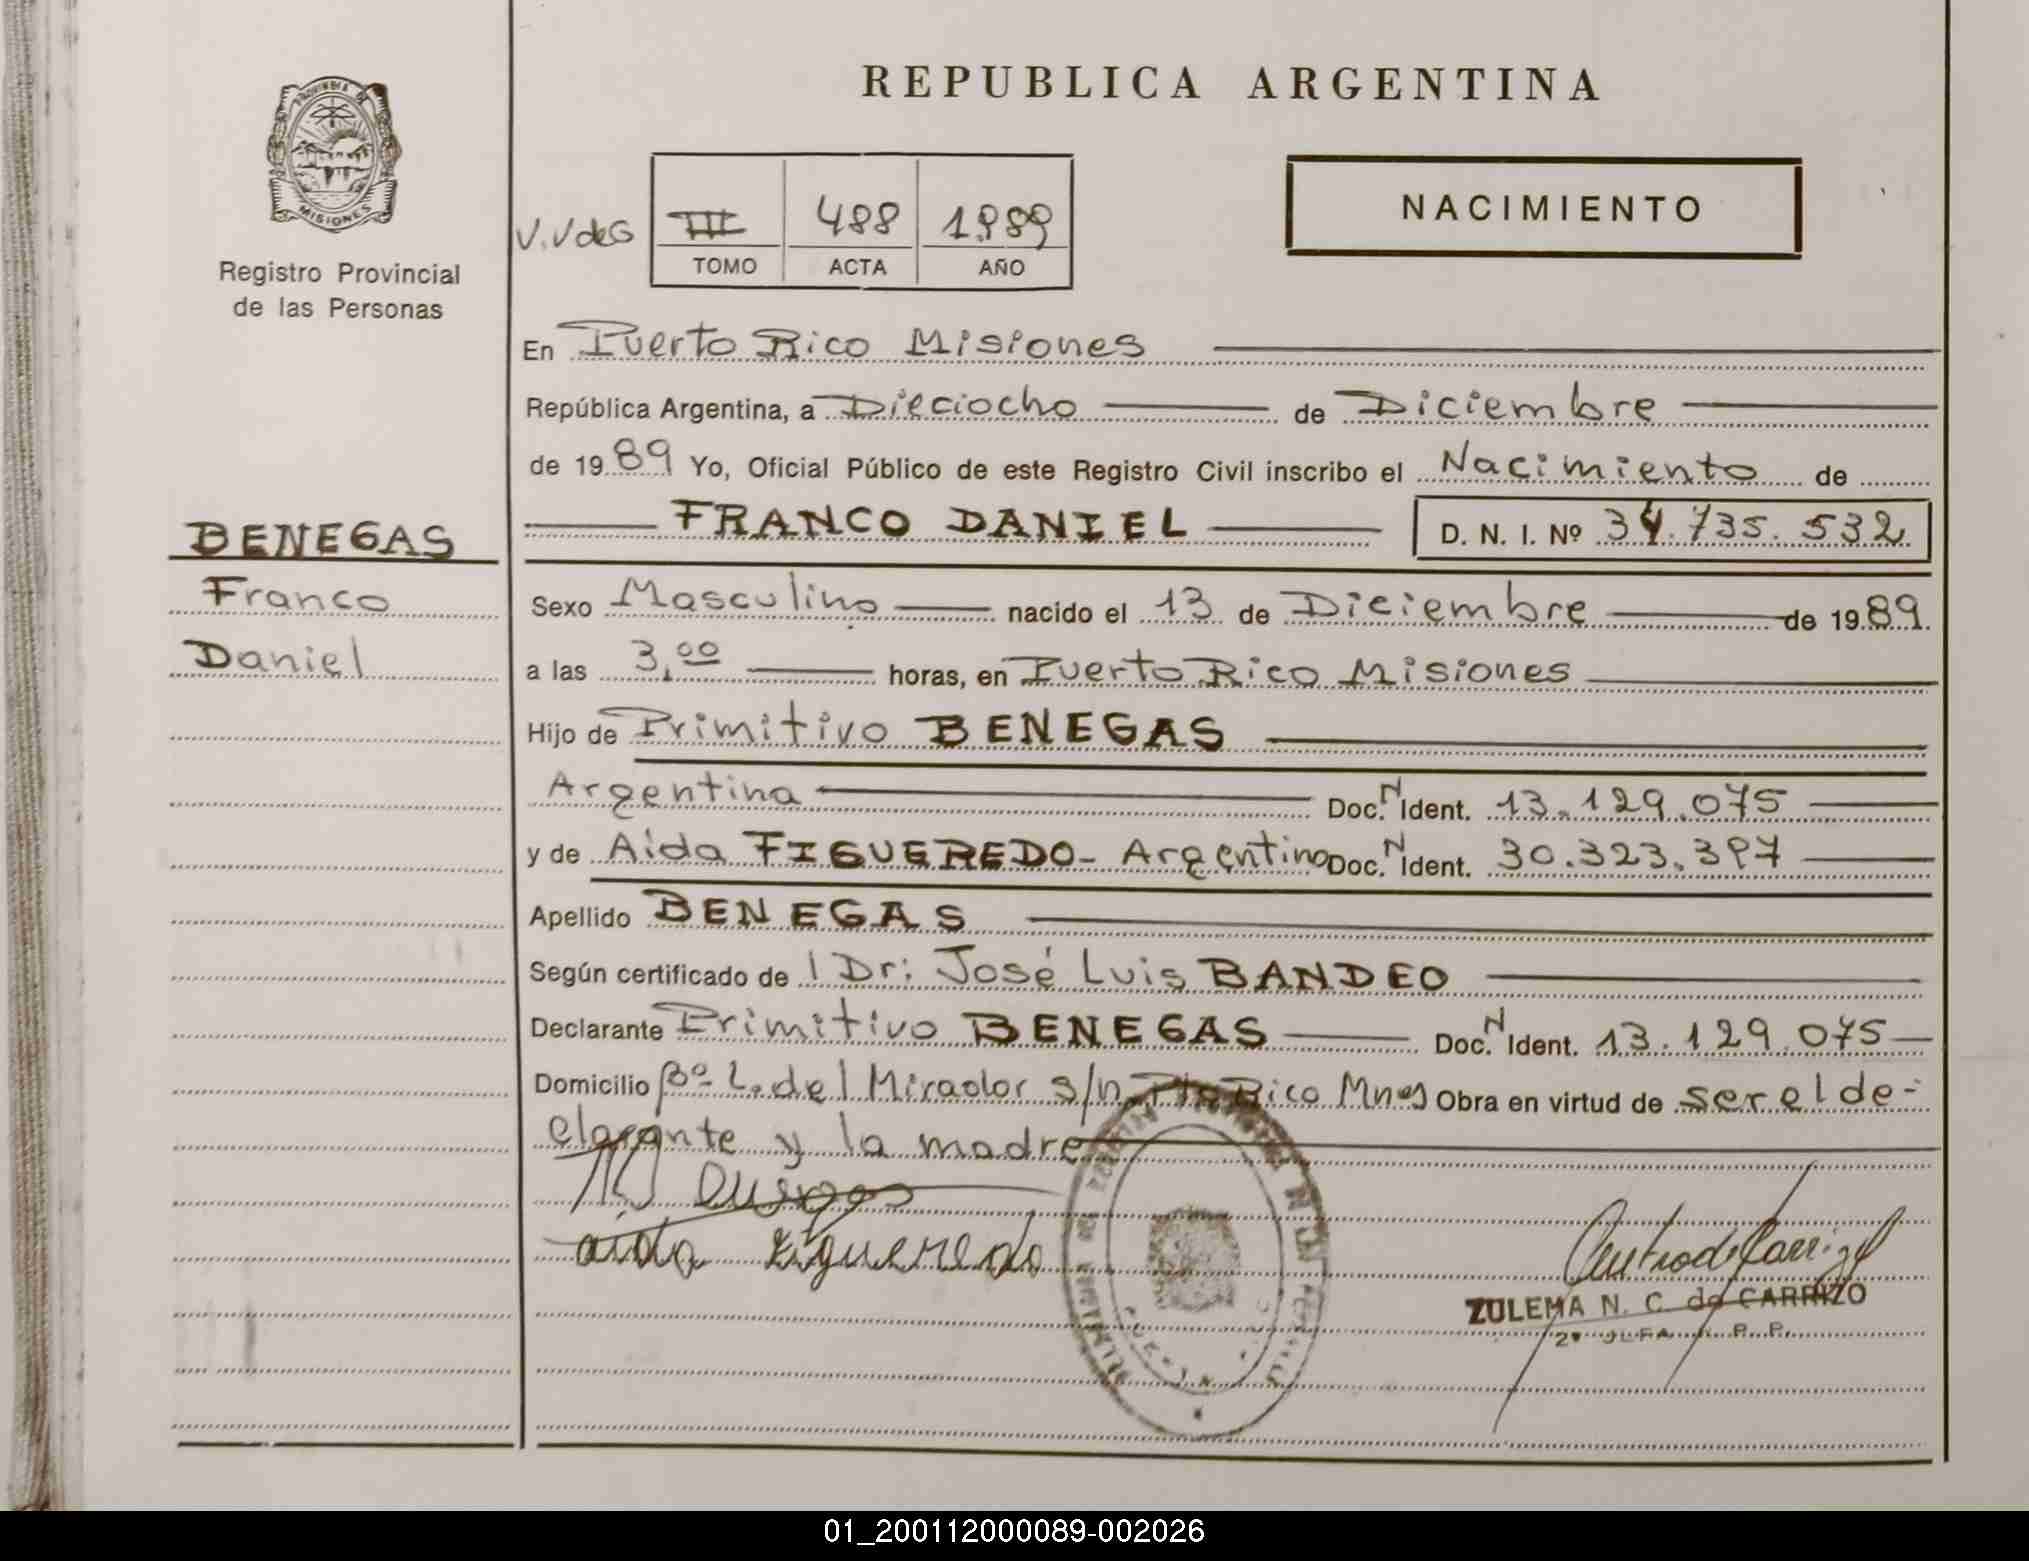 REPUBLICA ARGENTINA
PROVINCIA DE
MISIONES
Registro Provincial
de las Personas
NACIMIENTO
V.V de G
III 488 1989
TOMO ACTA AÑO
En Puerto Rico Misiones
República Argentina, a Dieciocho de Diciembre
de 1989 Yo, Oficial Público de este Registro Civil inscribo el Nacimiento de
BENEGAS
Franco
Daniel
FRANCO DANIEL D. N. I. Nº 34.735.532
Sexo Masculino nacido el 13 de Diciembre de 1989.
a las 3,00 horas, en Puerto Rico Misiones
Hijo de Primitivo BENEGAS
Argentina Doc. N Ident. 13.129.075
y de Aida FIGUEREDO - Argentina Doc. N Ident. 30.323.397
Apellido BENEGAS
Según certificado de l Dr: José Luis BANDEO
Declarante Primitivo BENEGAS Doc. N Ident. 13.129.075
Domicilio Bº L. del Mirador s/n Pto Rico Mnes Obra en virtud de ser el de-
clarante y la madre
aida figueredo
ZULEMA N. C. de CARRIZO
01_200112000089-002026